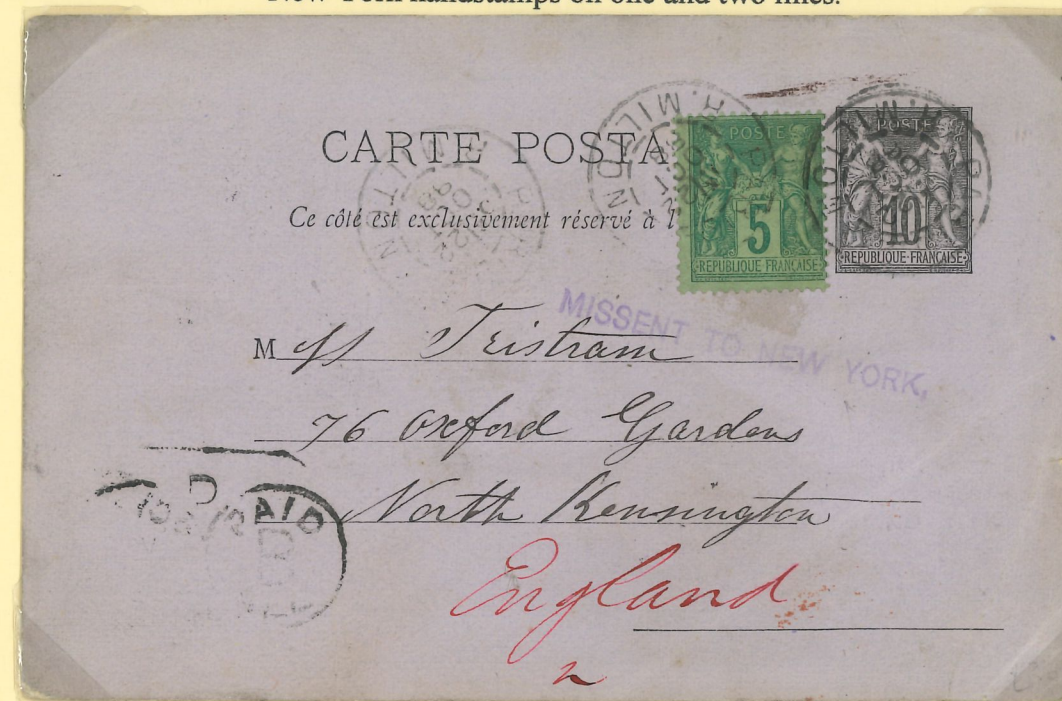 New York handstamps on one and two lines.
CARTE POSTA
Ce côté est exclusivement réservé à l
POSTE
5
REPUBLIQUE FRANÇAISE
POSTE
10
REPUBLIQUE FRANÇAISE
MISSENT TO NEW YORK,
M Tristram
76 Oxford Gardens
North Kensington
England
PAID